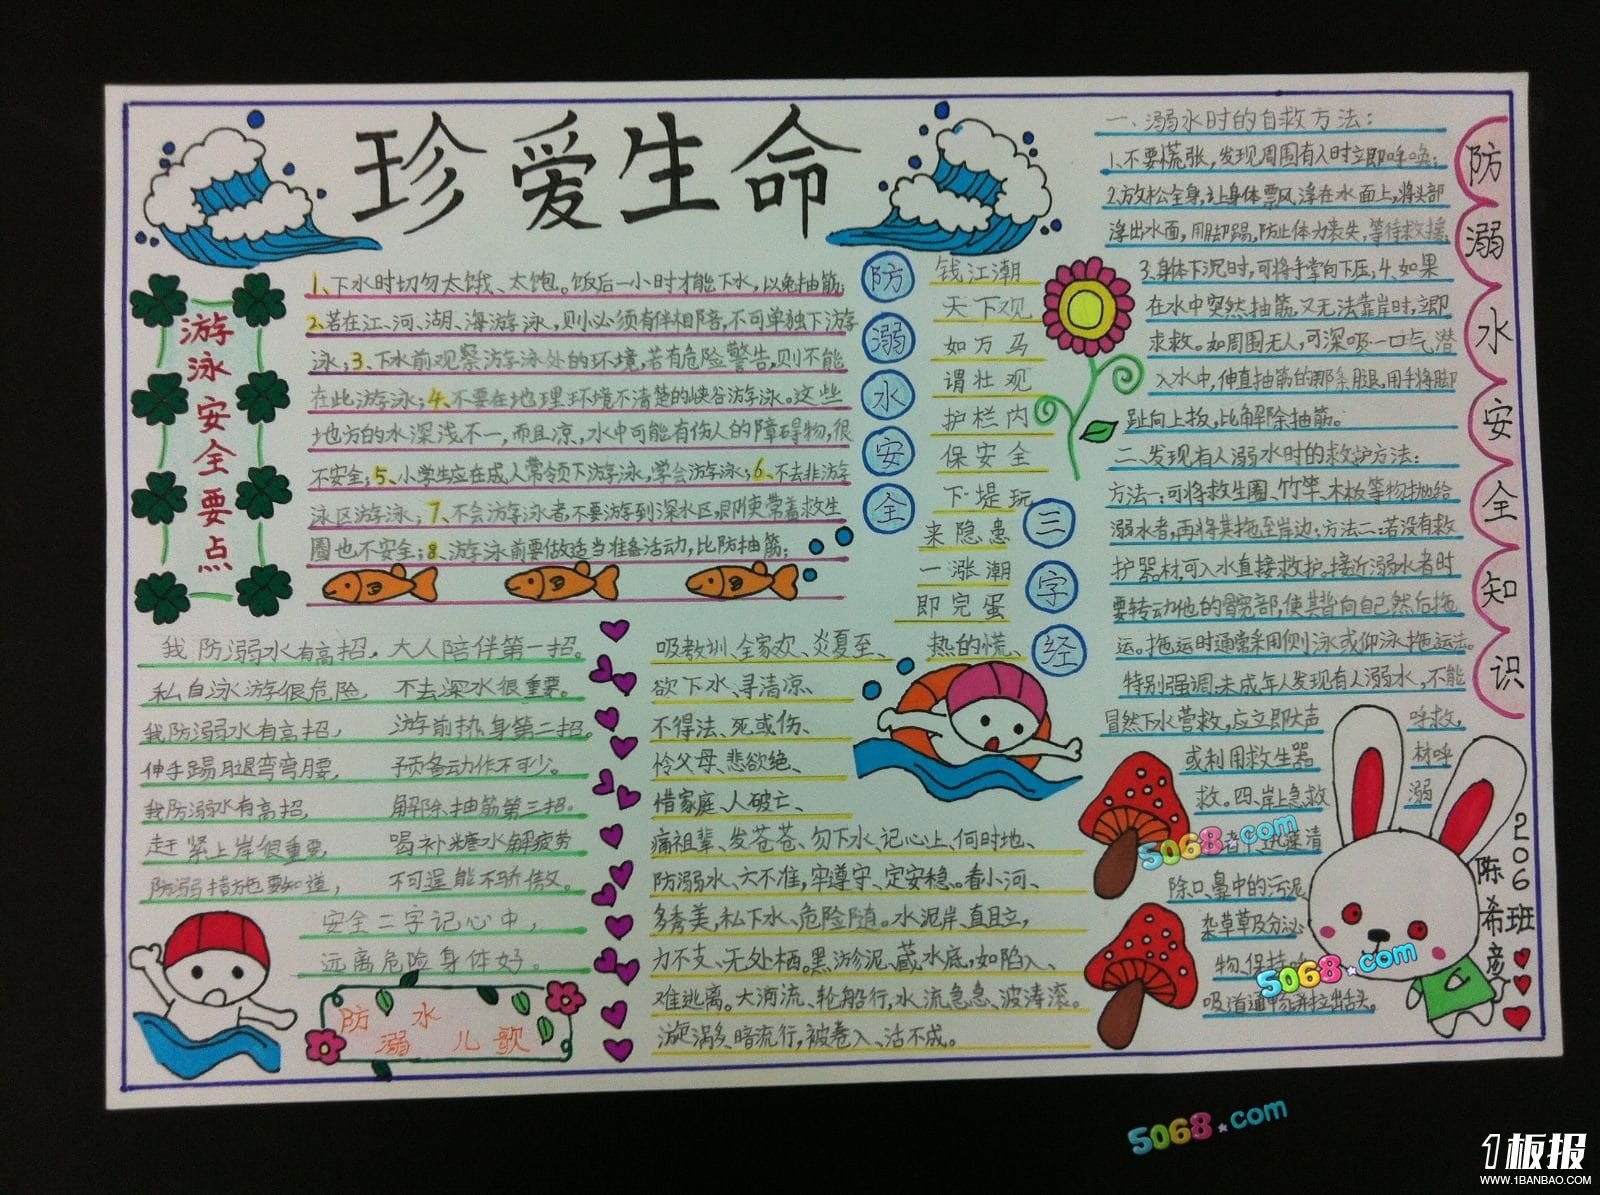 珍爱生命
游泳安全要点
1、下水时切勿太饿、太饱。饭后一小时才能下水,以免抽筋;
2、若在江、河、湖、海游泳,则必须有伴相陪,不可单独下游
泳;3、下水前观察游泳处的环境,若有危险警告,则不能
在此游泳;4、不要在地理环境不清楚的峡谷游泳。这些
地方的水深浅不一,而且凉,水中可能有伤人的障碍物,很
不安全;5、小学生应在成人带领下游泳,学会游泳;6、不去非游
泳区游泳;7、不会游泳者,不要游到深水区,即使带着救生
圈也不安全;8、游泳前要做适当准备活动,比防抽筋;
防溺水安全
三字经
钱江潮
天下观
如万马
谓壮观
护栏内
保安全
下堤玩
来隐患
一涨潮
即完蛋
吸教训、全家欢、炎夏至、热的慌、
欲下水、寻清凉、
不得法、死或伤、
怜父母、悲欲绝、
借家庭、人破亡、
痛祖辈、发苍苍、勿下水、记心上、何时地、
防溺水、六不准,牢遵守、定安稳。看小河、
多秀美,私下水、危险随。水泥岸、直且立,
力不支、无处栖。黑淤泥、藏水底,如陷入、
难逃离。大河流、轮船行,水流急急、波涛滚。
漩涡多、暗流行,被卷入、活不成。
我防溺水有高招,大人陪伴第一招。
私自泳游很危险,不去深水很重要。
我防溺水有高招,游前热身第二招。
伸手踢腿弯弯腰,预备动作不可少。
我防溺水有高招,解除抽筋第三招。
赶紧上岸很重要,喝补糖水解疲劳
防溺措施要知道,不可逞能不骄傲。
安全二字记心中,
远离危险身体好。
防溺水儿歌
防溺水安全知识
一、溺水时的自救方法:
1、不要慌张,发现周围有人时立即呼唤;
2、放松全身,让身体票风浮在水面上,将头部
浮出水面,用脚踢,防止体力丧失,等待救援,
3、身体下沉时,可将手掌向下压;4、如果
在水中突然抽筋,又无法靠岸时,立即
求救。如周围无人,可深吸一口气潜
入水中,伸直抽筋的那条腿,用手将脚
趾向上扳,比解除抽筋。
二、发现有人溺水时的救护方法:
方法一:可将救生圈、竹竿、木板等物抛给
溺水者,再将其拖至岸边;方法二:若没有救
护器材,可入水直接救护。接近溺水者时
要转动他的髋部,使其背向自己然后拖
运。拖运时通常采用侧泳或仰泳拖运法。
特别强调:未成年人发现有人溺水,不能
冒然下水营救,应立即大声呼救,
或利用救生器材呼
救。四、岸上急救溺
迅速清
除口、鼻中的污泥、
杂草及分泌
物,保持呼
吸道通畅,并拉出舌头,
206班
陈希彦
5068.com
5068.com
5068.com
1板报
WWW.1BANBAO.COM